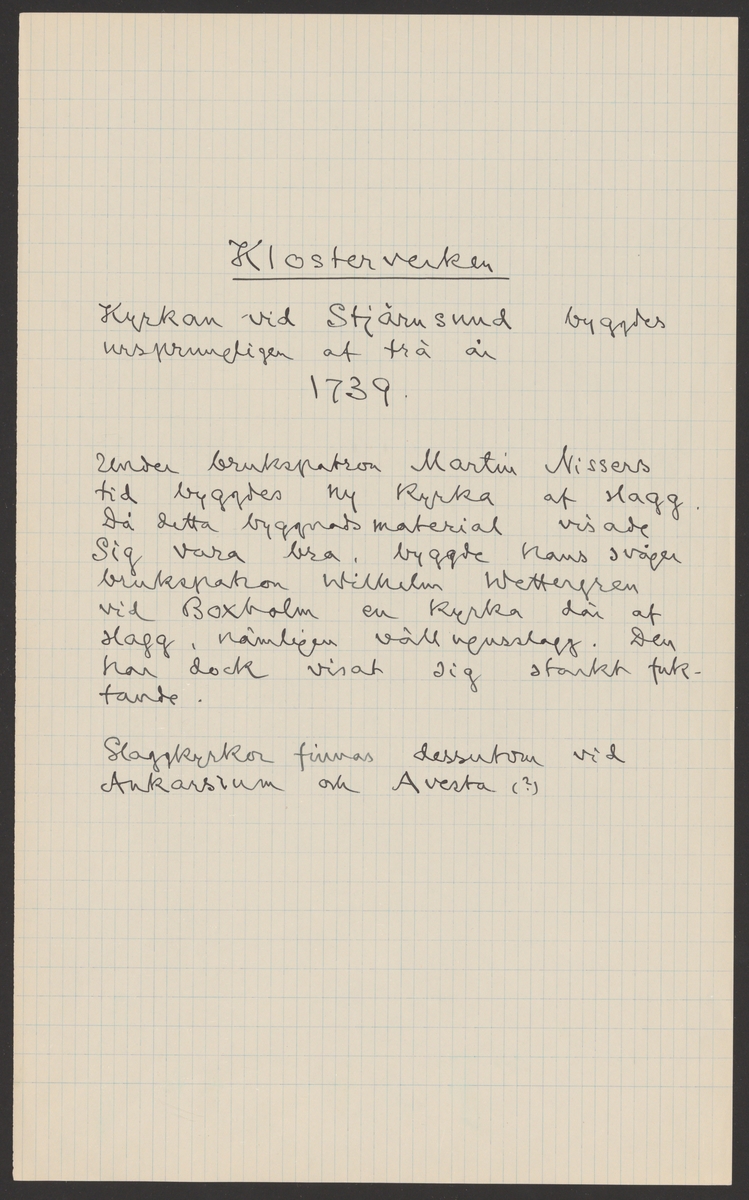 Klosterverken
Kyrkan vid Stjärnsund byggdes
ursprungligen af trä år
1739.
Under brukspatron Martin Nissers
tid byggdes ny kyrka af slagg.
Då detta byggnadsmaterial visade
sig vara bra, byggde hans svåger
brukspatron Wilhelm Wettergren
vid Boxholm en kyrka där af
slagg, nämligen vällugnsslagg. Den
har dock visat sig starkt fuk-
tande.
Slaggkyrkor finnas dessutom vid
Ankarsrum och Avesta (?)